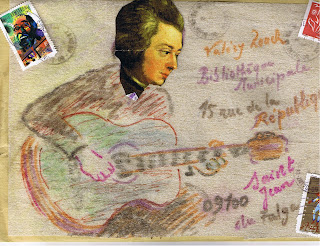 Bibliothèque
Municipale
15 rue de la
République
Saint
Jean
09100
du falga